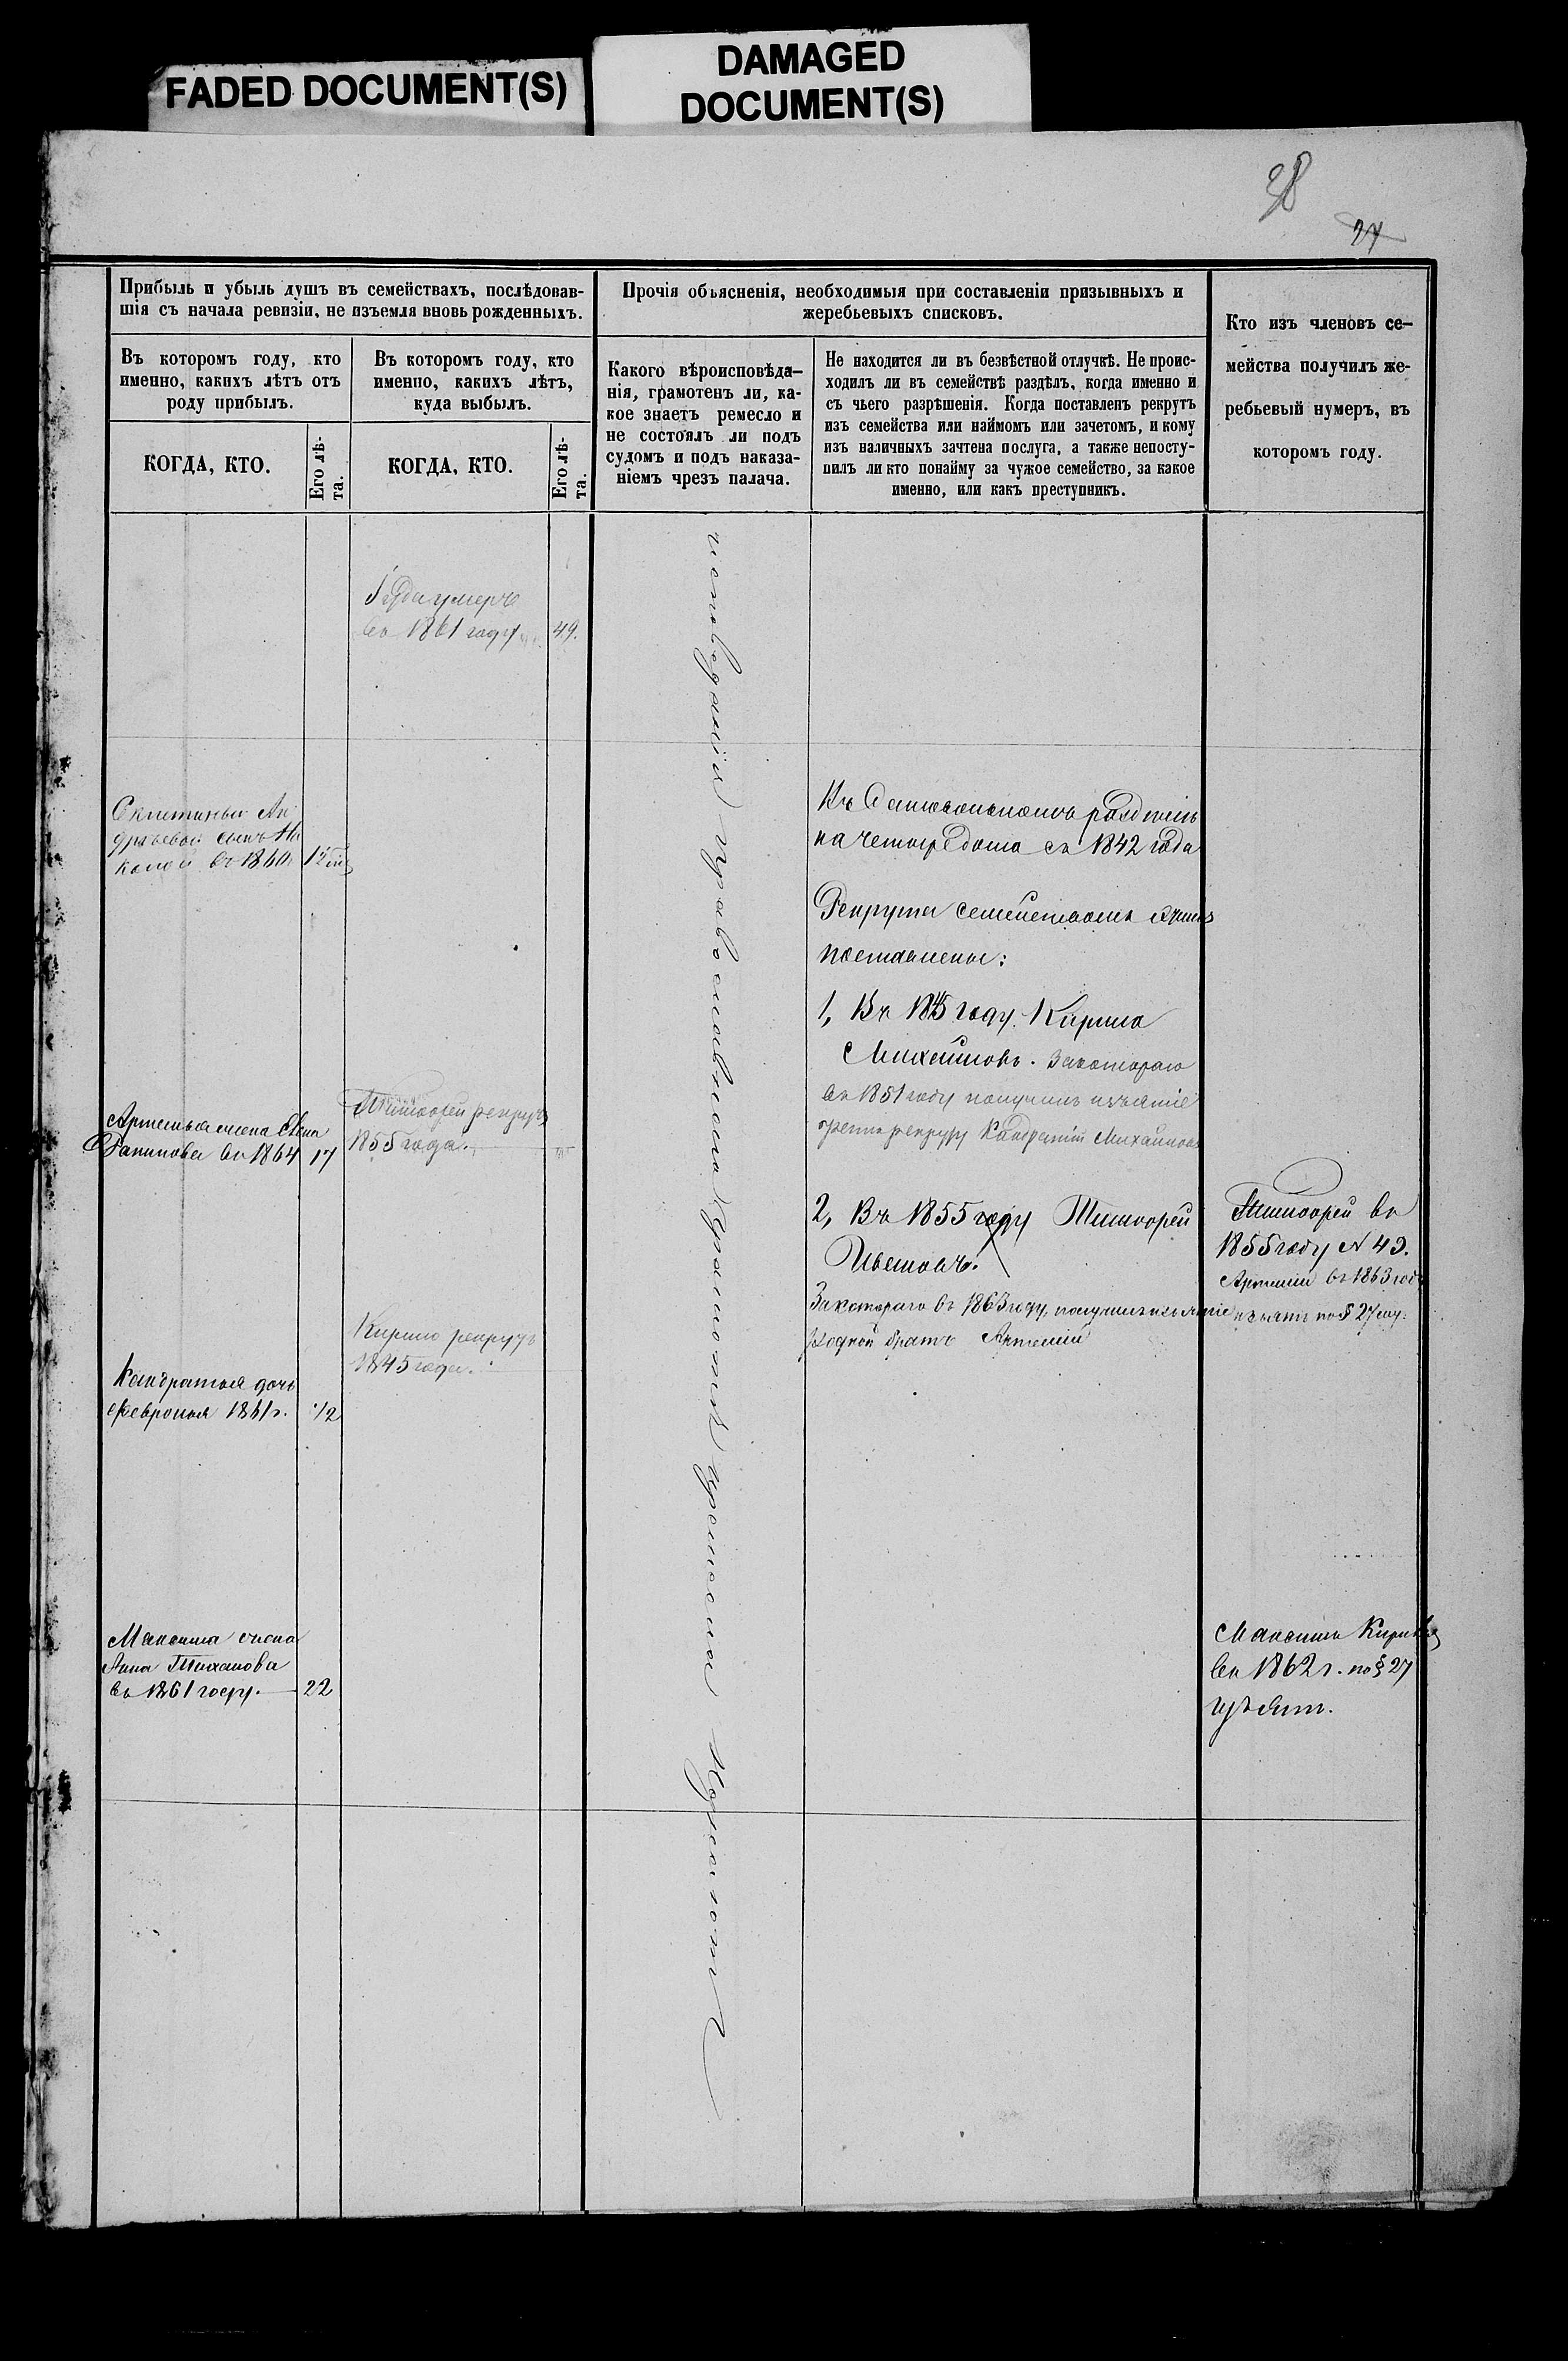 FADED DOCUMENT(S)
DAMAGED
DOCUMENT(S)
28
27
Прибыль и убыль душъ въ семействахъ, послѣдовав-
шія съ начала ревизіи, не изъемля вновь рожденныхъ.
Въ которомъ году, кто
именно, какихъ лѣтъ отъ
роду прибылъ.
КОГДА, КТО.
Его лѣ-
та.
Въ которомъ году, кто
именно, какихъ лѣтъ,
куда выбылъ.
КОГДА, КТО.
Его лѣ-
та.
Прочія обьясненія, необходимыя при составленіи призывныхъ и
жеребьевыхъ списковъ.
Какого вѣроисповѣда-
нія, грамотенъ ли, ка-
кое знаетъ ремесло и
не состоялъ ли подъ
судомъ и подъ наказа-
ніемъ чрезъ палача.
Не находится ли въ безвѣстной отлучкѣ. Не проис-
ходилъ ли въ семействѣ раздѣлъ, когда именно и
съ чьего разрѣшенія. Когда поставленъ рекрутъ
изъ семейства или наймомъ или зачетомъ, и кому
изъ наличныхъ зачтена послуга, а также непосту-
пилъ ли кто понайму за чужое семейство, за какое
именно, или какъ преступникъ.
Кто изъ членовъ се-
мейства получилъ же-
ребьевый нумеръ, въ
которомъ году.
умеръ
въ 1861 году 49.
Ан
дреевой сынъ Ни
колай въ 1860
Артемья жена
въ 1864 17
Кандратья дочь
Февронья 1861 г. 1/2
Максима жена
Анна Тиханова
въ 1861 году. 22
Тимофей рекрутъ
1855 года.
Кирило рекрутъ
1845 года.
исповеданія православнаго
раздѣлъ
на четыре дома съ 1842 года
Рекруты семействомъ
поставлены:
1, Въ 1845 году Кирило
Михайловъ. Закотораго
въ 1851 году получилъ изъятіе
Кандратій Михайловъ
2, Въ 1855 году Тимофей
Ивановъ.
Закотораго въ 1863 году, получилъ изъятіе
родной братъ Артемій
Тимофей въ
1855 году № 43.
Артемій въ 1863 году
изъятъ по § 27
Максимъ
въ 1862 г. по § 27
изъятъ.